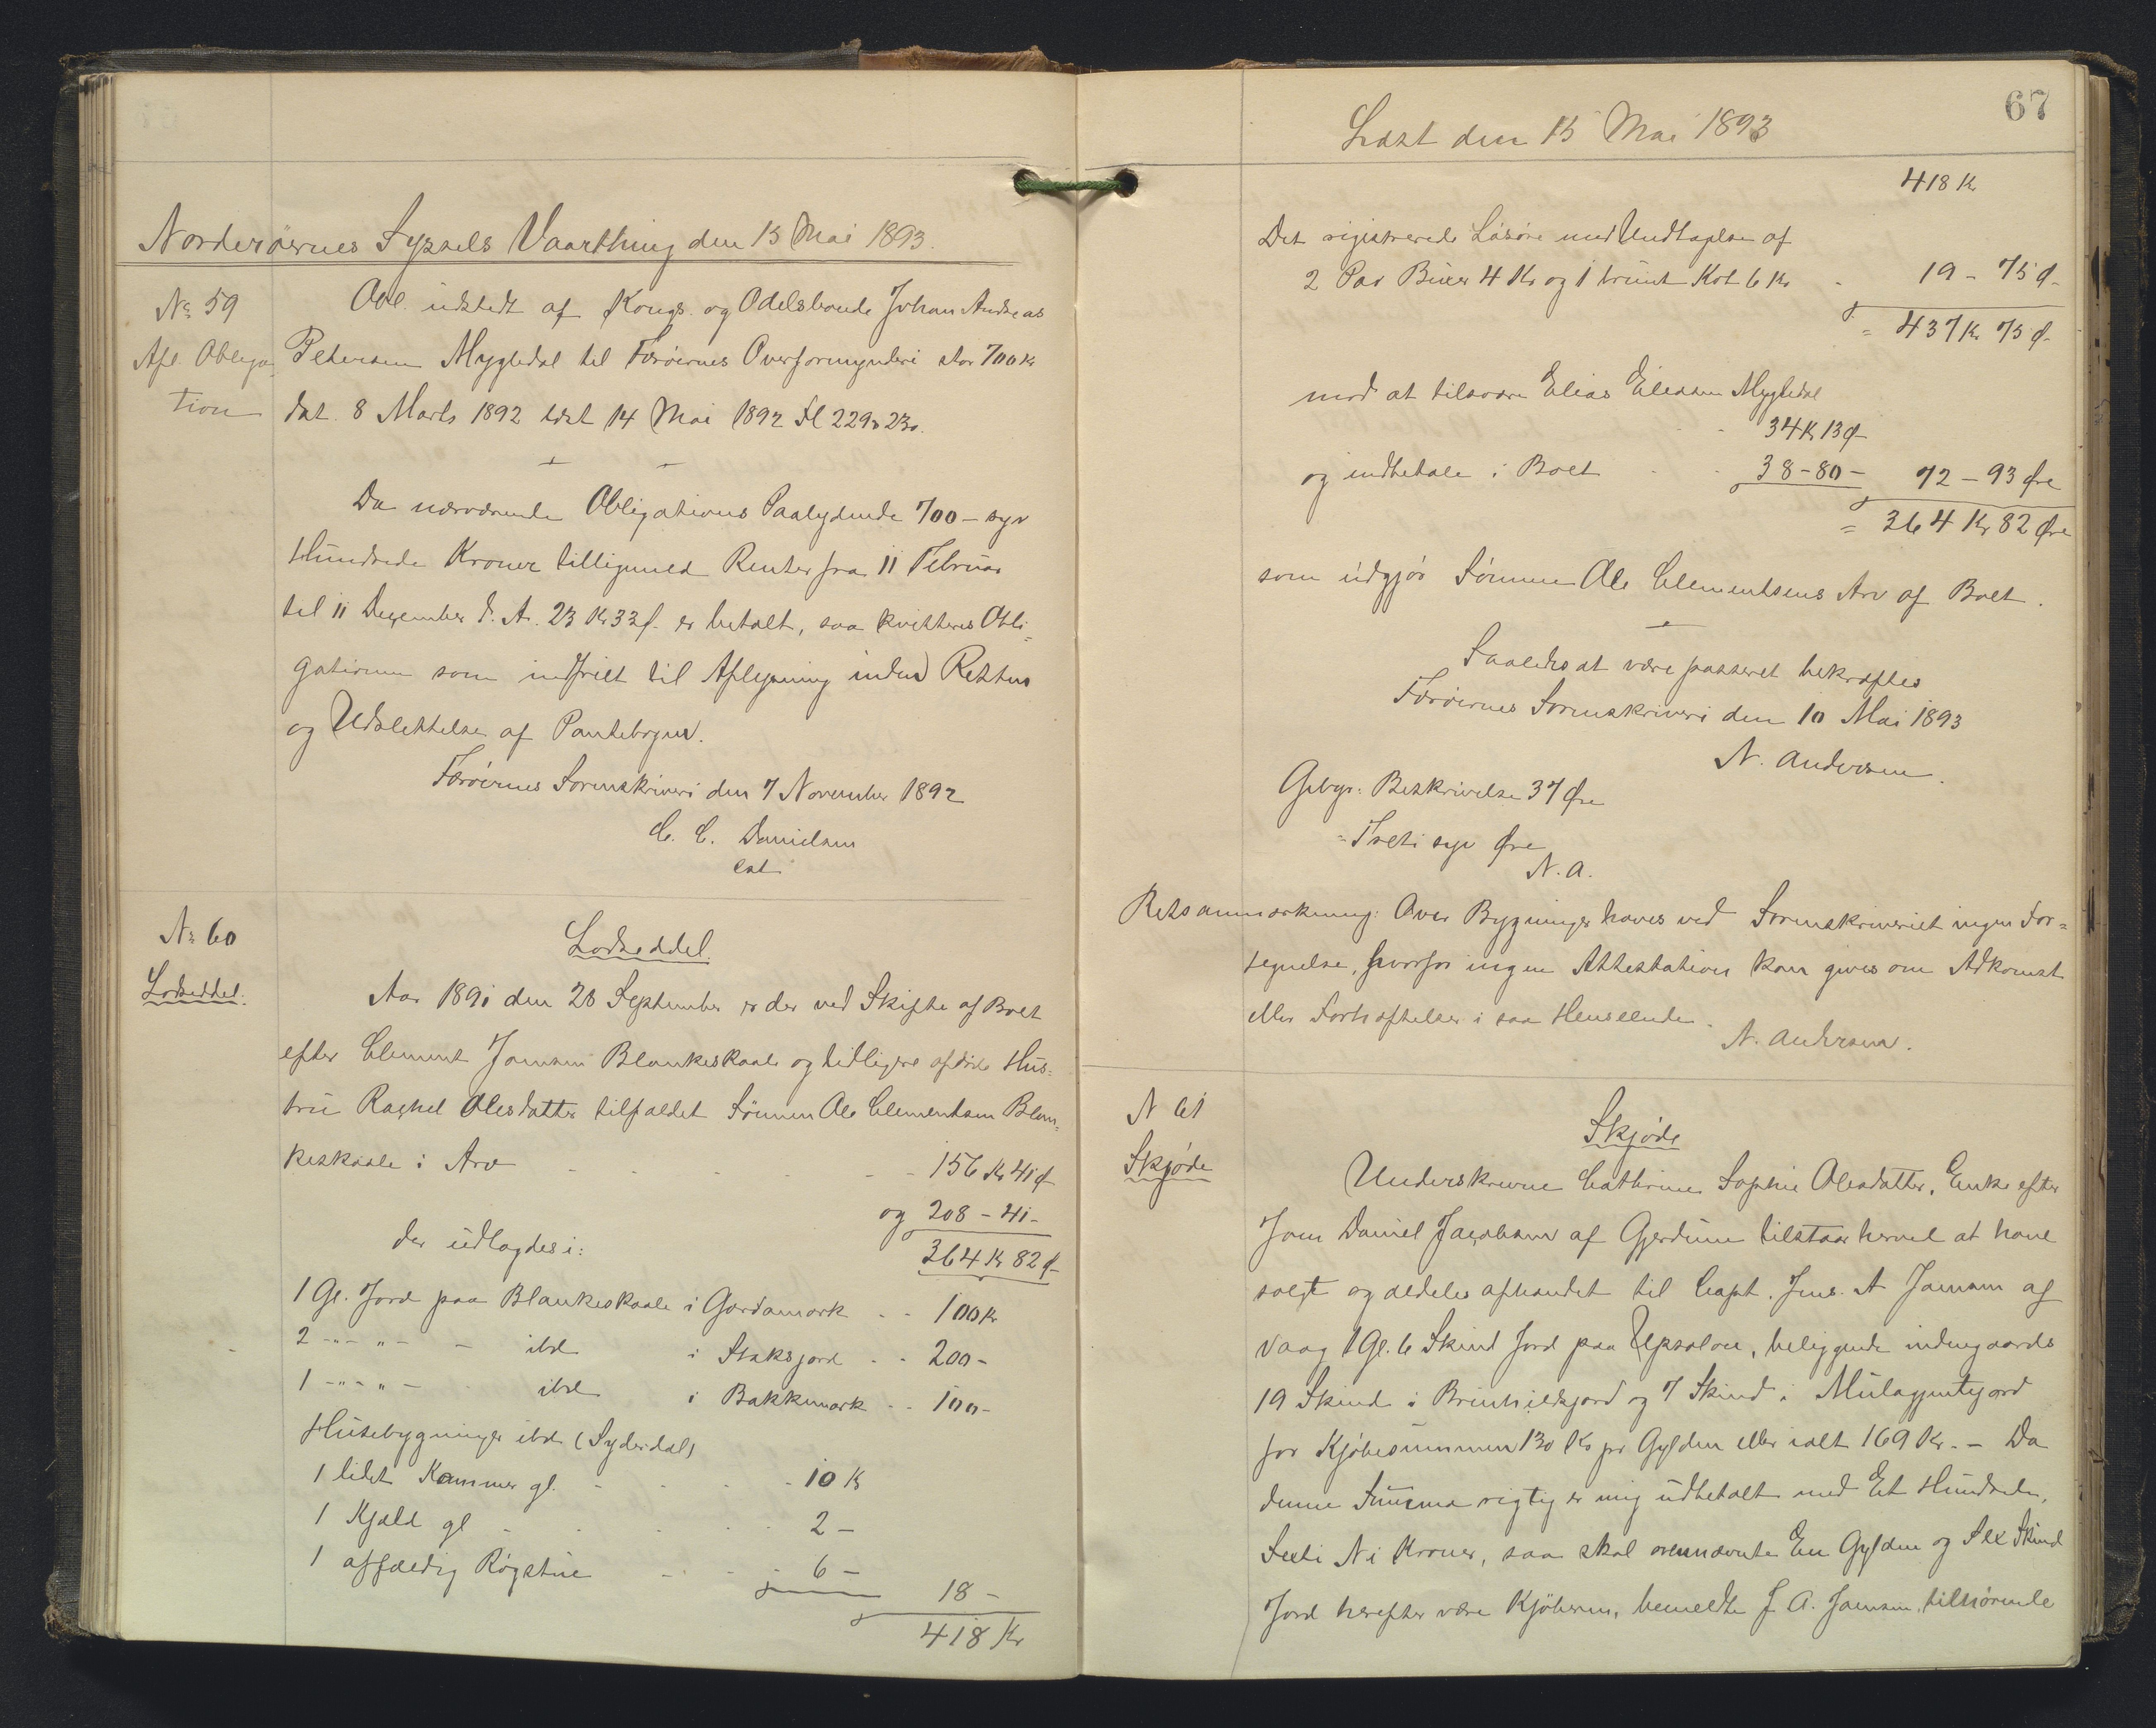 Norderøernes Syssels Vaarthing den 15 Mai 1893.
No 59
Afl. Obliga-
tion
Obl. udstedt af Kongs- og Odelsbonde Johan Andreas
Petersen Mygledal til Færøernes Overformynderi stor 700 Kr
dat. 8 Marts 1892 læst 14 Mai 1892 Fl 229 & 230.
Da nærværende Obligations Paalydende 700 - syv
Hundrede Kroner tilligemed Renter fra 11 Februar
til 11 Dezember d. A. 23 Kr 33 Ø. er betalt, saa kvitteres Obli=
gationen som indfriet til Aflysning inden Retten
og Udslettelse af Pantebogen.
Færøernes Sorenskriveri den 7 November 1892
C. C. Danielsen
cst
No 60
Lodseddel.
Lodseddel.
Aar 1891 den 28 September er der ved Skifte af Boet
efter Clement Joensen Blankeskaale og tidligere afdøde Hus=
tru Rachel Olesdatter tilfaldet Sønnen Ole Clementsen Blan=
keskaale i Arv - - - - 156 Kr 41 Ø
og 208 - 41 -
der udlagdes i:
364 Kr 82 Ø
1 Gl. Jord paa Blankeskaale i Gardamork - - 100 Kr
2 -"- "- - ibd i Staksjord - - 200 -
1 -"- "- - ibd i Bakkemork - - 100 -
Husebygninger ibd (Syderdal)
1 lidet Kammer gl. - - - - 10 Kr
1 Kjæld gl - - - - 2 -
1 affældig Røgstue - - - - 6 -
18 -
418 Kr
67
Læst den 15 Mai 1893
418 Kr
Det registrerede Løsøre med Undtagelse af
2 Par Buxer 4 Kr og 1 brunt Kot 6 Kr - 19 - 75 Ø -
= 437 Kr 75 Ø -
mod at tilsvare Elias Eliasen Mygledal
34 Kr 13 Ø
og indbetale i Boet - - 38 - 80 - 72 - 93 Øre
= 364 Kr 82 Øre
som udgjør Sønnen Ole Clementsens Arv af Boet.
Saaledes at være passeret bekræftes
Færøernes Sorenskriveri den 10 Mai 1893
N. Andersen.
Gebyr: Beskrivelse 37 Øre
= Treti syv Øre
N. A.
Retsanmærkning: Over Bygninger haves ved Sorenskriveriet ingen For=
tegnelse, hvorfor ingen Attestation kan gives om Adkomst
eller Forhæftelser i saa Henseende.
N. Andersen.
N 61
Skjøde
Skjøde
Underskrevne Cathrine Sophie Olesdatter, Enke efter
Joen Daniel Jacobsen af Gjerdum tilstaar herved at have
solgt og aldeles afhændet til Capt. Jens. A Joensen af
Vaag 1 Gl. 6 Skind Jord paa Upsalen, beliggende indengaards
19 Skind i Brinhildsjord og 7 Skind i Mulagjentejord
for Kjøbesummen 130 Kr pr Gylden eller ialt 169 Kr. - Da
denne Summa rigtig er mig udbetalt med Et Hundrede,
Sexti Ni Kroner, saa skal ovennævnte En Gylden og Sex Skind
Jord herefter være Kjøberen, bemeldte J. A. Joensen, tilhørende